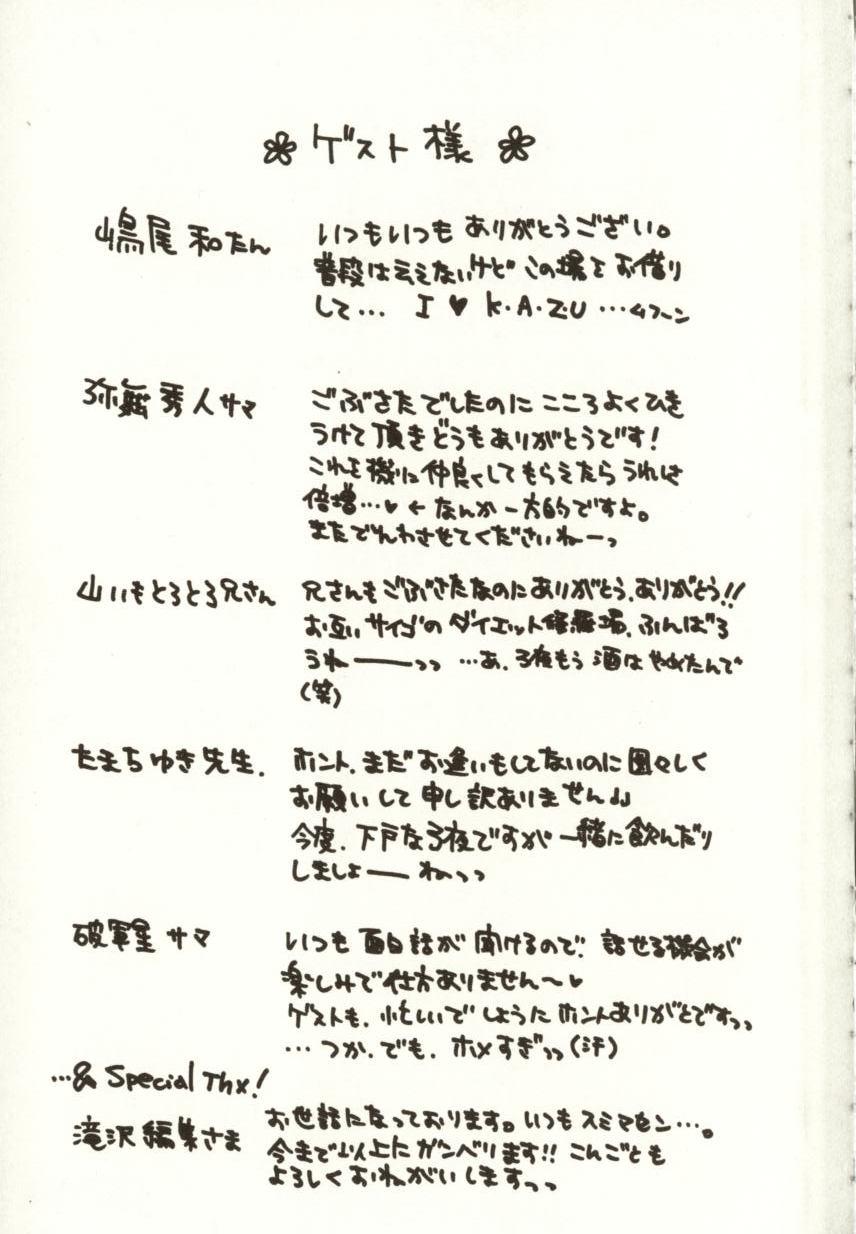 ゲスト様
嶋尾和たん
いつもいつもありがとうござい。
普段は云えないけどこの場をお借り
して… I ♥ K・A・Z・U …ムフーン
弥舞秀人サマ
ごぶさたでしたのにこころよくひき
うけて頂きどうもありがとうです!
これを機に仲良くしてもらえたらうれしさ
倍増…♥ ←なんか一方的ですよ。
またでんわさせてくださいねーっ
山いもとろとろ兄さん
兄さんもごぶさたなのにありがとう、ありがとう!!
お互いサイゴのダイエット修羅場、ふんばろ
うねーーーっっ …あ、子夜もう酒はやめたんで
(笑)
たまちゆき先生.
ホント、まだお逢いもしてないのに図々しく
お願いして申し訳ありません
今度、下戸な子夜ですが一緒に飲んだり
しましょーーねっっ
破軍星サマ
いつも面白話が聞けるので、話せる機会が
楽しみで仕方ありません〜♥
ゲストも、忙しいでしょうにホントありがとですっっ
…つか、でも、ホメすぎっっ(汗)
…& Special Thx!
滝沢編集さま
お世話になっております。いつもスミマセン…。
今まで以上にガンバります!! こんごとも
よろしくおねがいしますっっ